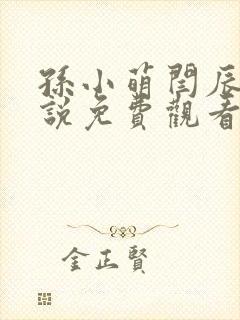 孫小萌閆辰
說免費觀看
金正賢